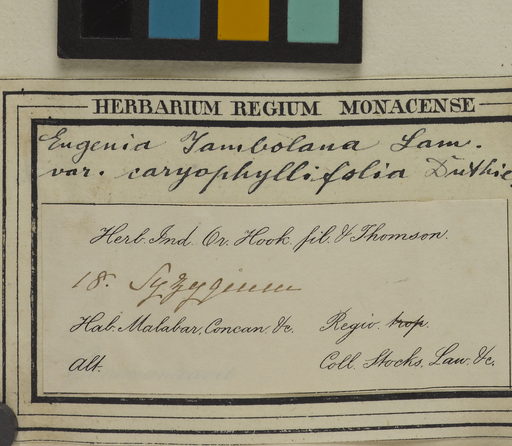 HERBARIUM REGIUM MONACENSE
Eugenia Jambolana Lam.
var. caryophyllifolia Duthie
Herb. Ind. Or. Hook. fil. & Thomson.
18. Syzygium
Hab. Malabar, Concan, &c. Regio trop.
Alt. Coll. Stocks, Law, &c.